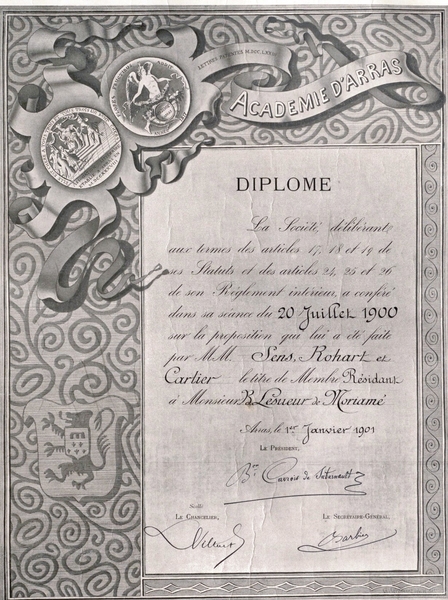 LETTRES PATENTES M.DCC.LXXIII
ACADEMIE D'ARRAS
DIPLOME
La Société, délibérant
aux termes des articles 17, 18 et 19 de
ses Statuts et des articles 24, 25 et 26
de son Règlement intérieur, a conféré
dans sa séance du 20 Juillet 1900
sur la proposition qui lui a été faite
par M.M. Sens, Rohart et
Cartier le titre de Membre Résidant
à Monsieur B. Lesueur de Moriamé
Arras, le 1er Janvier 1901
LE PRÉSIDENT,
Bon Cavrois de Saternault
Scellé
LE CHANCELIER,
LE SECRÉTAIRE-GÉNÉRAL,
Barbier